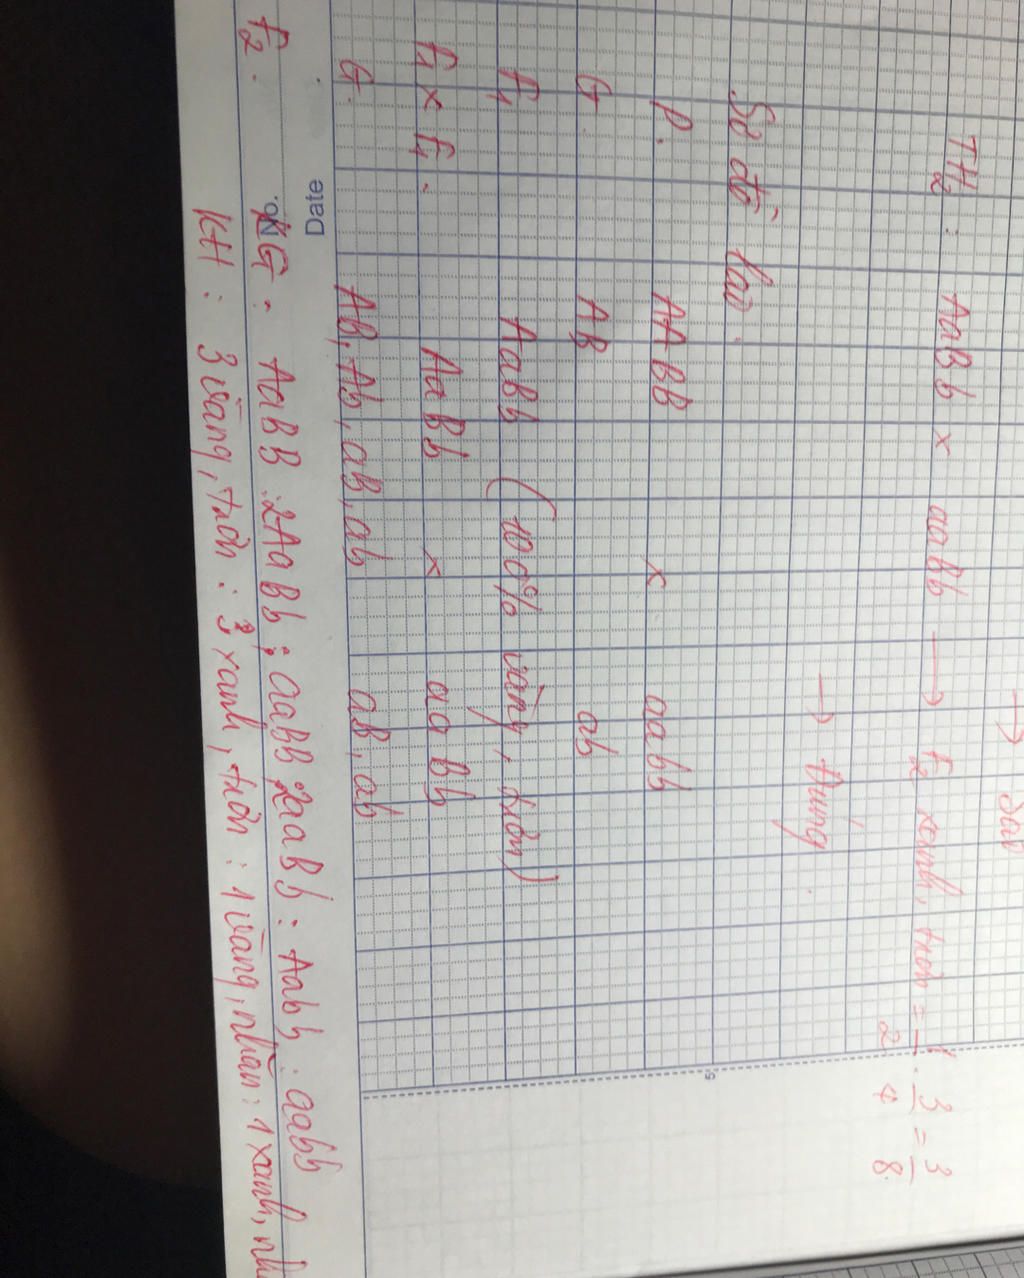 → Sai
TH2 : AaBb × aaBb → F2 xanh, trơn = 1/2 . 3/4 = 3/8
→ Đúng.
5
Sơ đồ lai :
P. AABB × aabb
G. AB ab
F1 AaBb (100% vàng, trơn)
F1 × F1. AaBb × aaBb
G. AB, Ab, aB, ab aB, ab
Date
No.
F2. KG : AaBB : 2AaBb : aaBB : 2aaBb : Aabb : aabb
KH : 3 vàng, trơn : 3 xanh, trơn : 1 vàng, nhăn : 1 xanh, nh